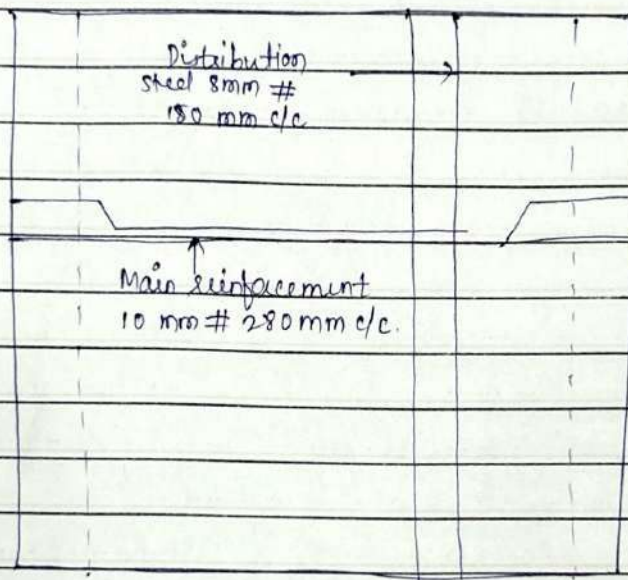 Distribution
steel 8mm #
180 mm c/c
Main reinforcement
10 mm # 280 mm c/c.